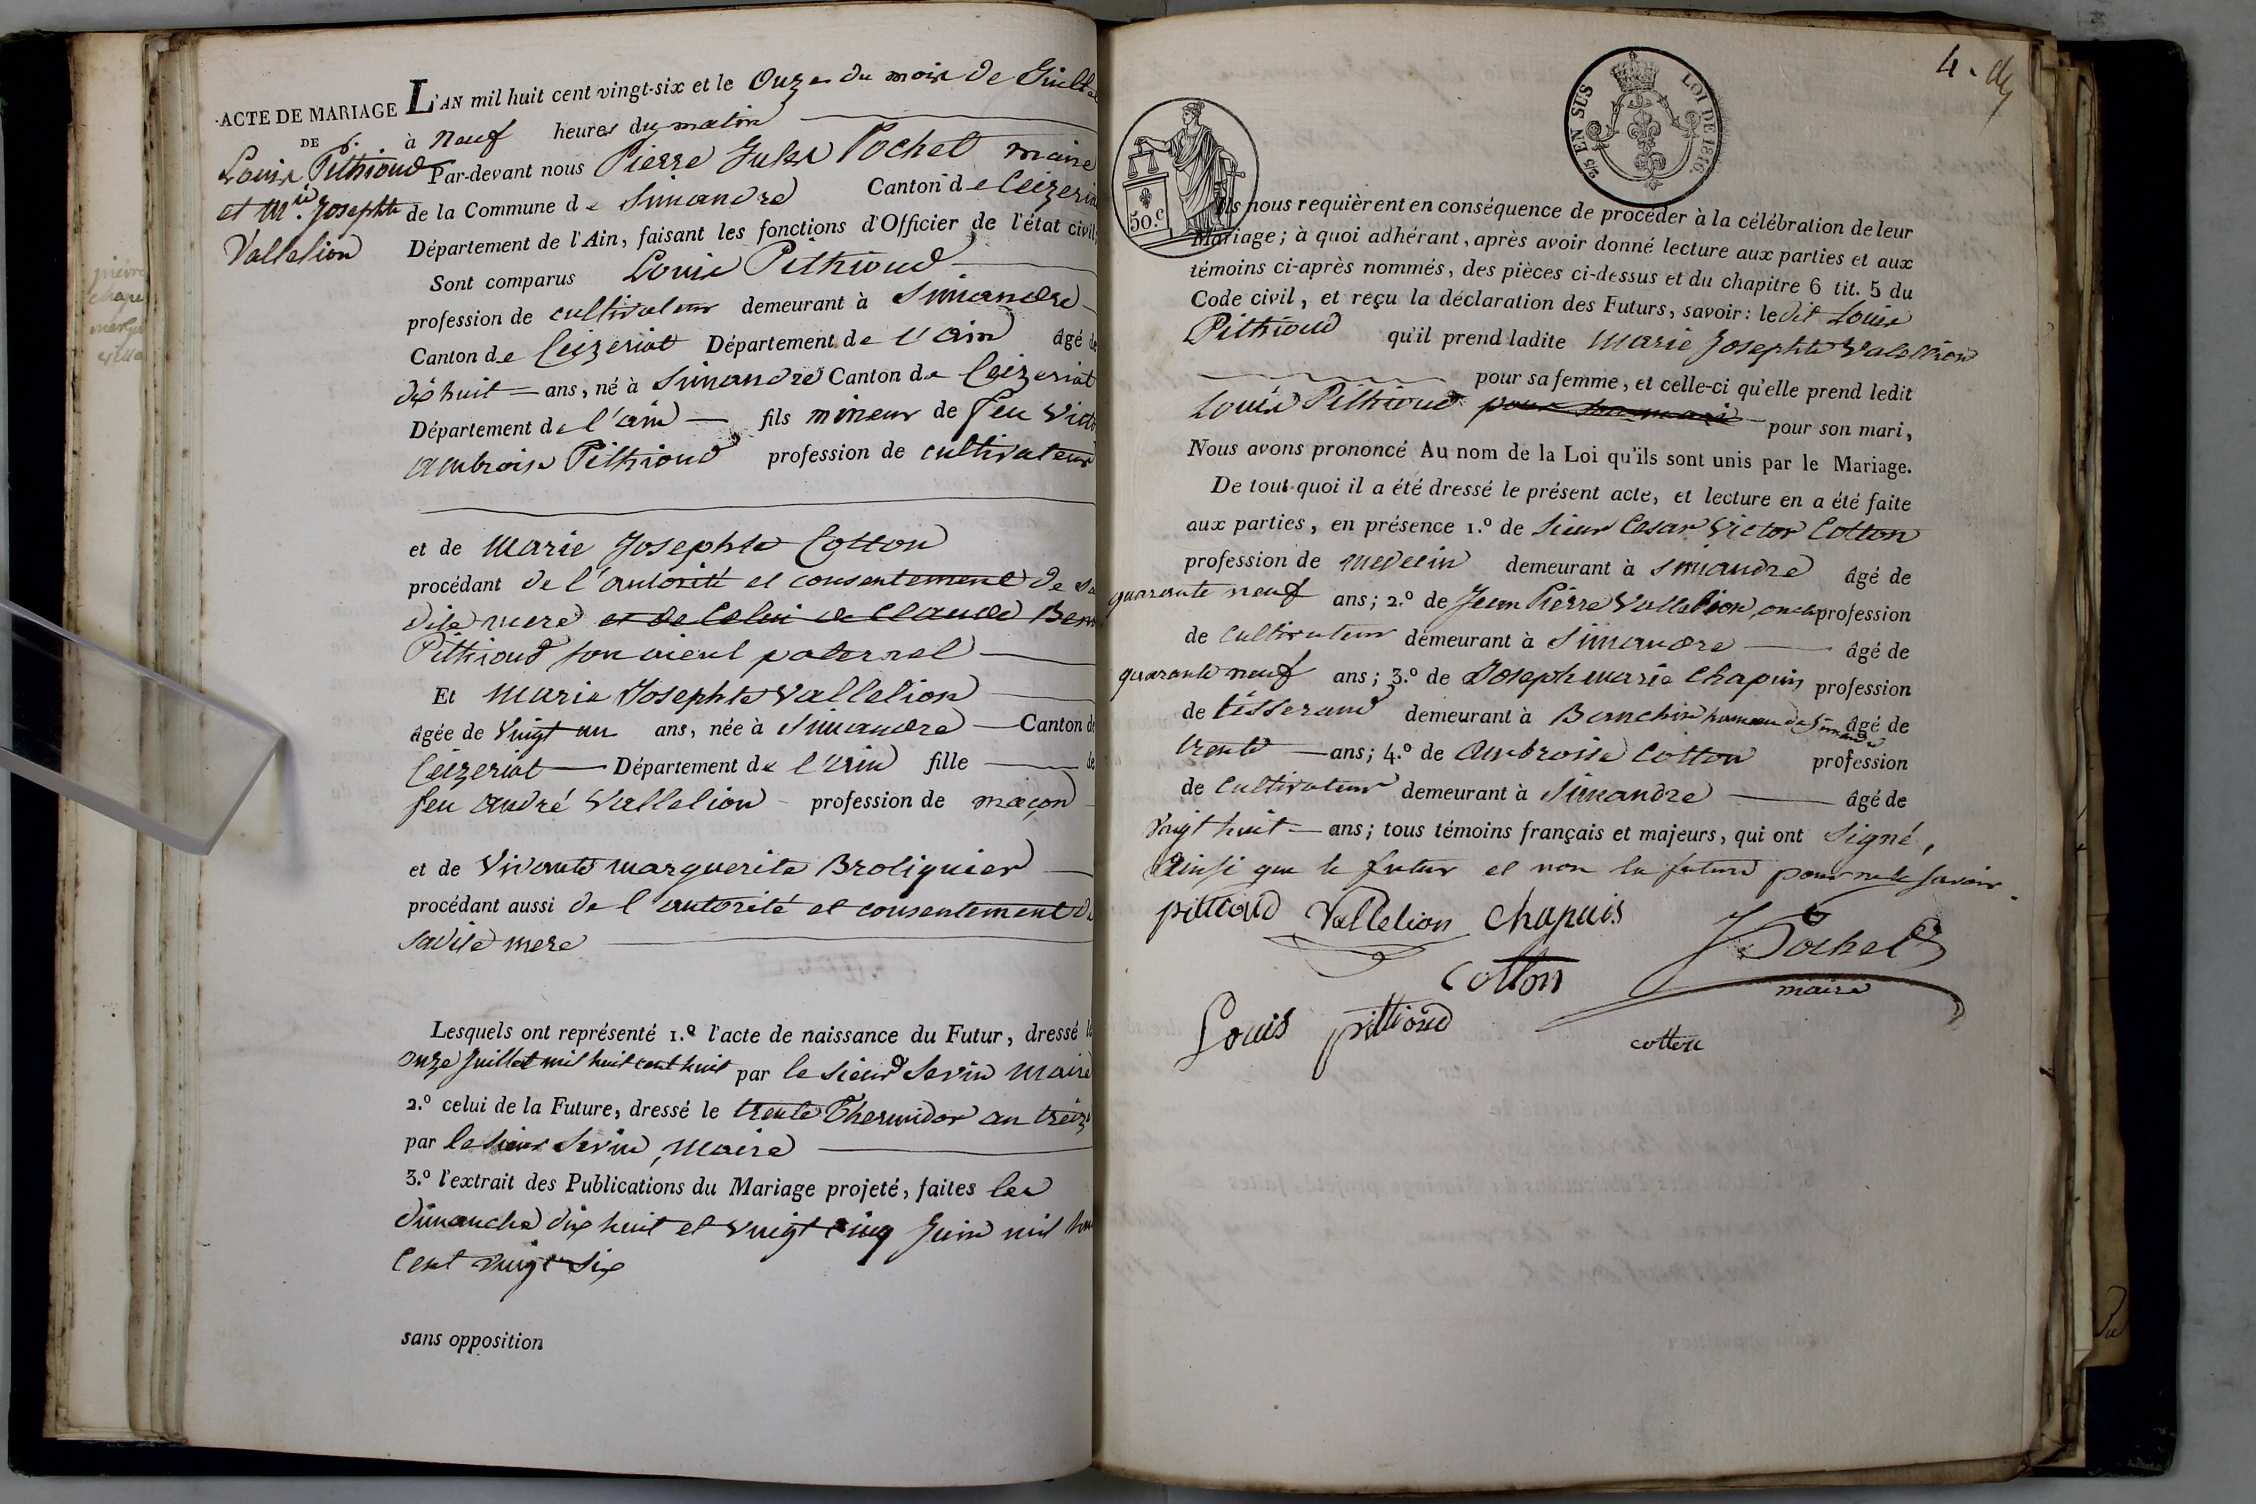 ACTE DE MARIAGE
DE 6.
Louis Pithioud
et M.ie Josephte
Vallelion
L'AN mil huit cent vingt-six et le Onze du mois de Juillet
à neuf heures du matin
Par-devant nous Pierre Jules Pochet maire
de la Commune de Simandre Canton de Ceizeriat
Département de l'Ain, faisant les fonctions d'Officier de l'état civil,
Sont comparus Louis Pithioud
profession de cultivateur demeurant à Simandre
Canton de Ceizeriat Département de l'ain âgé de
dix huit ans, né à Simandre Canton de Ceizeriat
Département de l'ain fils mineur de feu Victor
ambroise Pithioud profession de cultivateur
et de Marie Josephte Cotton
procédant de l'autorité et consentement de sa
dite mere et de celui de Claude
Pithioud son aieul paternel
Et Marie Josephte Vallelion
âgée de Vingt un ans, née à Simandre Canton de
Ceizeriat Département de l'ain fille de
feu andré Vallelion profession de maçon
et de Vivante marguerite Broliquier
procédant aussi de l'autorité et consentement de
sadite mere
Lesquels ont représenté 1.º l'acte de naissance du Futur, dressé le
onze Juillet mil huit cent huit par le sieur Sevin maire
2.º celui de la Future, dressé le trente Thermidor an treize
par le sieur Sevin, maire
3.º l'extrait des Publications du Mariage projeté, faites les
dimanche dix huit et vingt cinq Juin mil huit
cent vingt six
sans opposition
4.
25 EN SUS
LOI DE 1816.
50.c
Ils nous requièrent en conséquence de procéder à la célébration de leur
Mariage; à quoi adhérant, après avoir donné lecture aux parties et aux
témoins ci-après nommés, des pièces ci-dessus et du chapitre 6 tit. 5 du
Code civil, et reçu la déclaration des Futurs, savoir: ledit Louis
Pithioud qu'il prend ladite Marie Josephte Valellion
pour sa femme, et celle-ci qu'elle prend ledit
Louis Pithioud pour son mari pour son mari,
Nous avons prononcé Au nom de la Loi qu'ils sont unis par le Mariage.
De tout quoi il a été dressé le présent acte, et lecture en a été faite
aux parties, en présence 1.º de sieur Cesar Victor Cotton
profession de medecin demeurant à Simandre âgé de
quarante neuf ans; 2.º de Jean Pierre Vallelion, oncle profession
de cultivateur demeurant à Simandre âgé de
quarante neuf ans; 3.º de Joseph marie Chapuis profession
de tisserand demeurant à Banchin hameau de Simandre âgé de
trente ans; 4.º de Ambroise Cotton profession
de cultivateur demeurant à Simandre âgé de
vingt huit ans; tous témoins français et majeurs, qui ont signé,
ainsi que le futur et non la future pour ne le savoir.
pittioud Vallelion Chapuis
J Pochet
maire
cotton
Louis pittioud
cotton